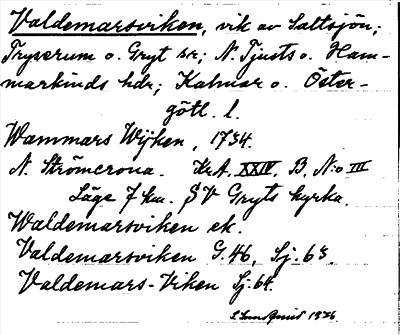 Valdemarsviken, vik av Saltsjön;
Tryserum o. Gryt snr; N. Tjusts o. Ham-
markinds hdr; Kalmar o. Öster-
götl. l.
Wammars Wijken, 1734.
N. Strömcrona. Kr.A. XXIV, B, N:o III
Läge 7 km. SV Gryts kyrka.
Waldemarsviken ek.
Valdemarsviken G. 46, Sj. 63.
Valdemars-Viken Sj. 64.